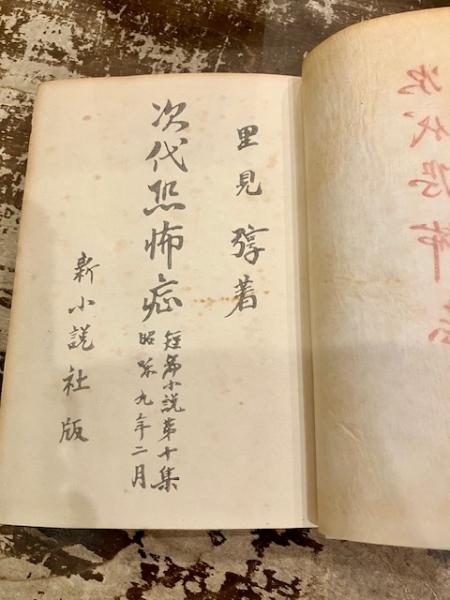 里見弴著
次代恐怖症
短篇小説第十集
昭和九年二月
新小説社版